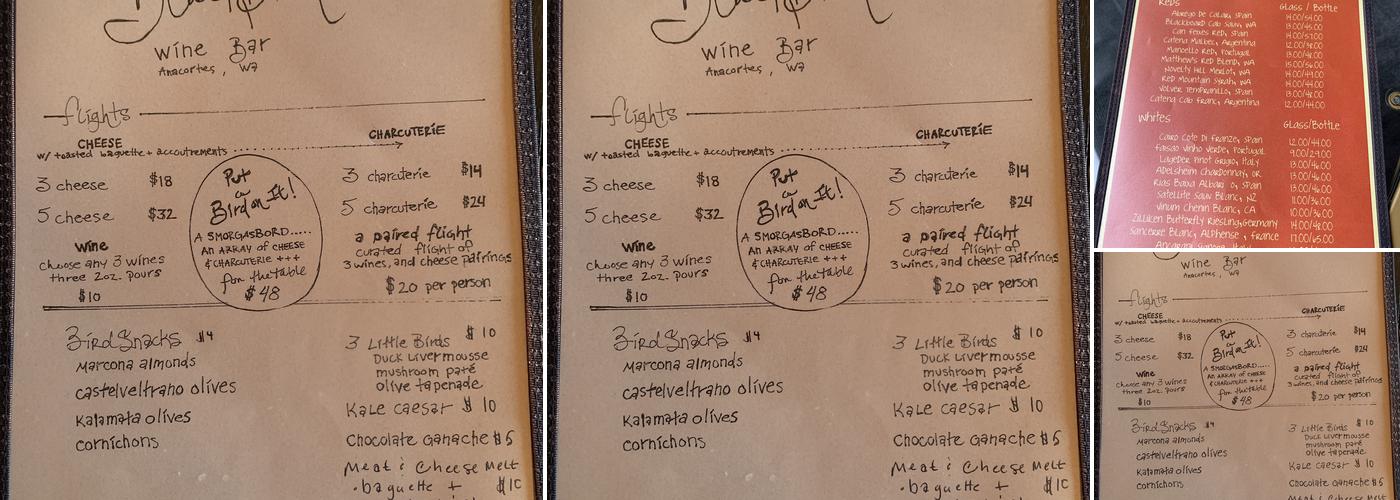 wine Bar
Anacortes, Wa
flights
CHEESE
CHARCUTERIE
w/ toasted baguette + accoutrements
3 cheese $18
5 cheese $32
Wine
choose any 3 wines
three 2oz. pours
$10
Put
a
Bird on It!
A SMORGASBORD.....
AN ARRAY of CHEESE
& CHARCUTERIE +++
for the table
$48
3 charcuterie $14
5 charcuterie $24
a paired flight
curated flight of
3 wines, and cheese pairings
$20 per person
Bird Snacks $4
Marcona almonds
castelveltrano olives
Kalamata olives
cornichons
3 Little Birds $10
Duck Liver mousse
mushroom paté
olive tapenade
Kale caesar $10
Chocolate Ganache $5
Meat & Cheese Melt
baguette +
wine Bar
Anacortes, Wa
flights
CHEESE
CHARCUTERIE
w/ toasted baguette + accoutrements
3 cheese $18
5 cheese $32
Wine
choose any 3 wines
three 2oz. pours
$10
Put
a
Bird on It!
A SMORGASBORD.....
AN ARRAY of CHEESE
& CHARCUTERIE +++
for the table
$48
3 charcuterie $14
5 charcuterie $24
a paired flight
curated flight of
3 wines, and cheese pairings
$20 per person
Bird Snacks $4
Marcona almonds
castelveltrano olives
Kalamata olives
cornichons
3 Little Birds $10
Duck Liver mousse
mushroom paté
olive tapenade
Kale caesar $10
Chocolate Ganache $5
Meat & Cheese Melt
baguette +
Reds Glass / Bottle
Blackboard Cab Sauv, WA 13.00/45.00
Can Feixes Red, Spain 14.00/57.00
Catena Malbec, Argentina 12.00/38.00
Mancello Red, Portugal 13.00/48.00
Matthew's Red Blend, WA 15.00/56.00
Novelty Hill Merlot, WA 14.00/49.00
Red Mountain Syrah, WA 14.00/49.00
Volver Tempranillo, Spain 13.00/48.00
Catena Cab Franc, Argentina 12.00/44.00
Whites Glass/Bottle
Cairo Cote Di Franze, Spain 12.00/44.00
Faisao Vinho Verde, Portugal 9.00/29.00
Lageder Pinot Grigio, Italy 13.00/46.00
Abelsheim Chardonnay, OR 13.00/46.00
Rias Baixa Albarino, Spain 13.00/46.00
Satellite Sauv Blanc, NZ 11.00/36.00
Vinum Chenin Blanc, CA 10.00/36.00
Zilliken Butterfly Riesling, Germany 14.00/48.00
Sancerre Blanc, Alphense, France 17.00/65.00
wine Bar
Anacortes, Wa
flights
CHEESE
CHARCUTERIE
w/ toasted baguette + accoutrements
3 cheese $18
5 cheese $32
Wine
choose any 3 wines
three 2oz. pours
$10
Put
a
Bird on It!
A SMORGASBORD.....
AN ARRAY of CHEESE
& CHARCUTERIE +++
for the table
$48
3 charcuterie $14
5 charcuterie $24
a paired flight
curated flight of
3 wines, and cheese pairings
$20 per person
Bird Snacks $4
Marcona almonds
castelveltrano olives
Kalamata olives
cornichons
3 Little Birds $10
Duck Liver mousse
mushroom paté
olive tapenade
Kale caesar $10
Chocolate Ganache $5